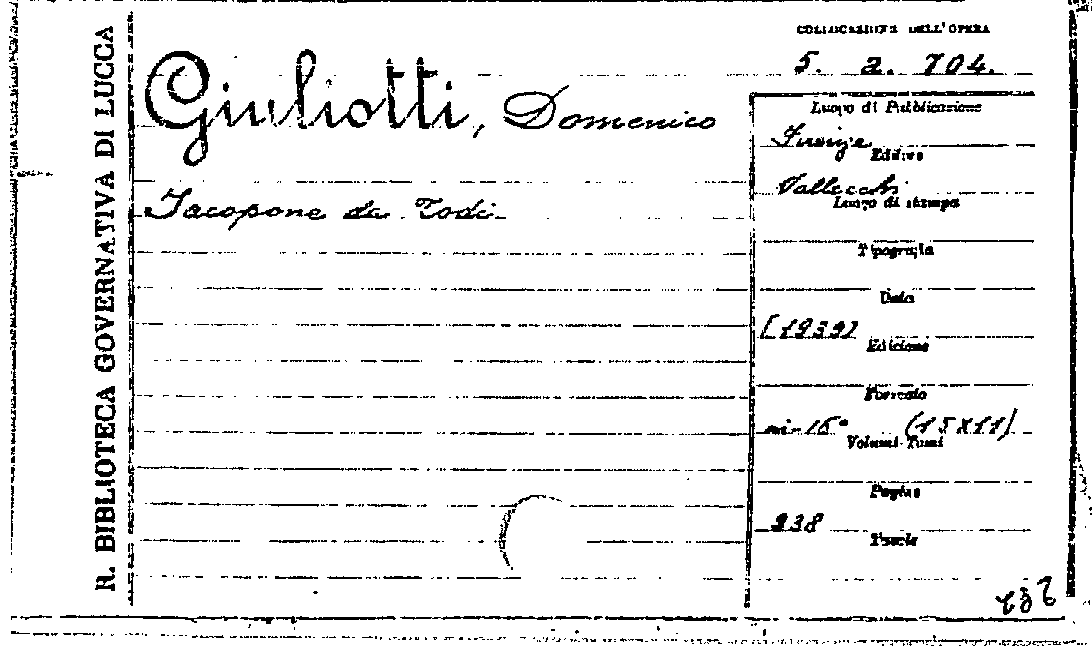 R. BIBLIOTECA GOVERNATIVA DI LUCCA
COLLOCAZIONE DELL'OPERA
5. 2. 704.
Giuliotti, Domenico
Jacopone da Todi
Luogo di Pubblicazione
Firenze
Editore
Vallecchi
Luogo di stampa
Tipografia
Data
[1939]
Edizione
Formato
in-16° (15X11)
Volumi-Tomi
Pagine
238
Tavole